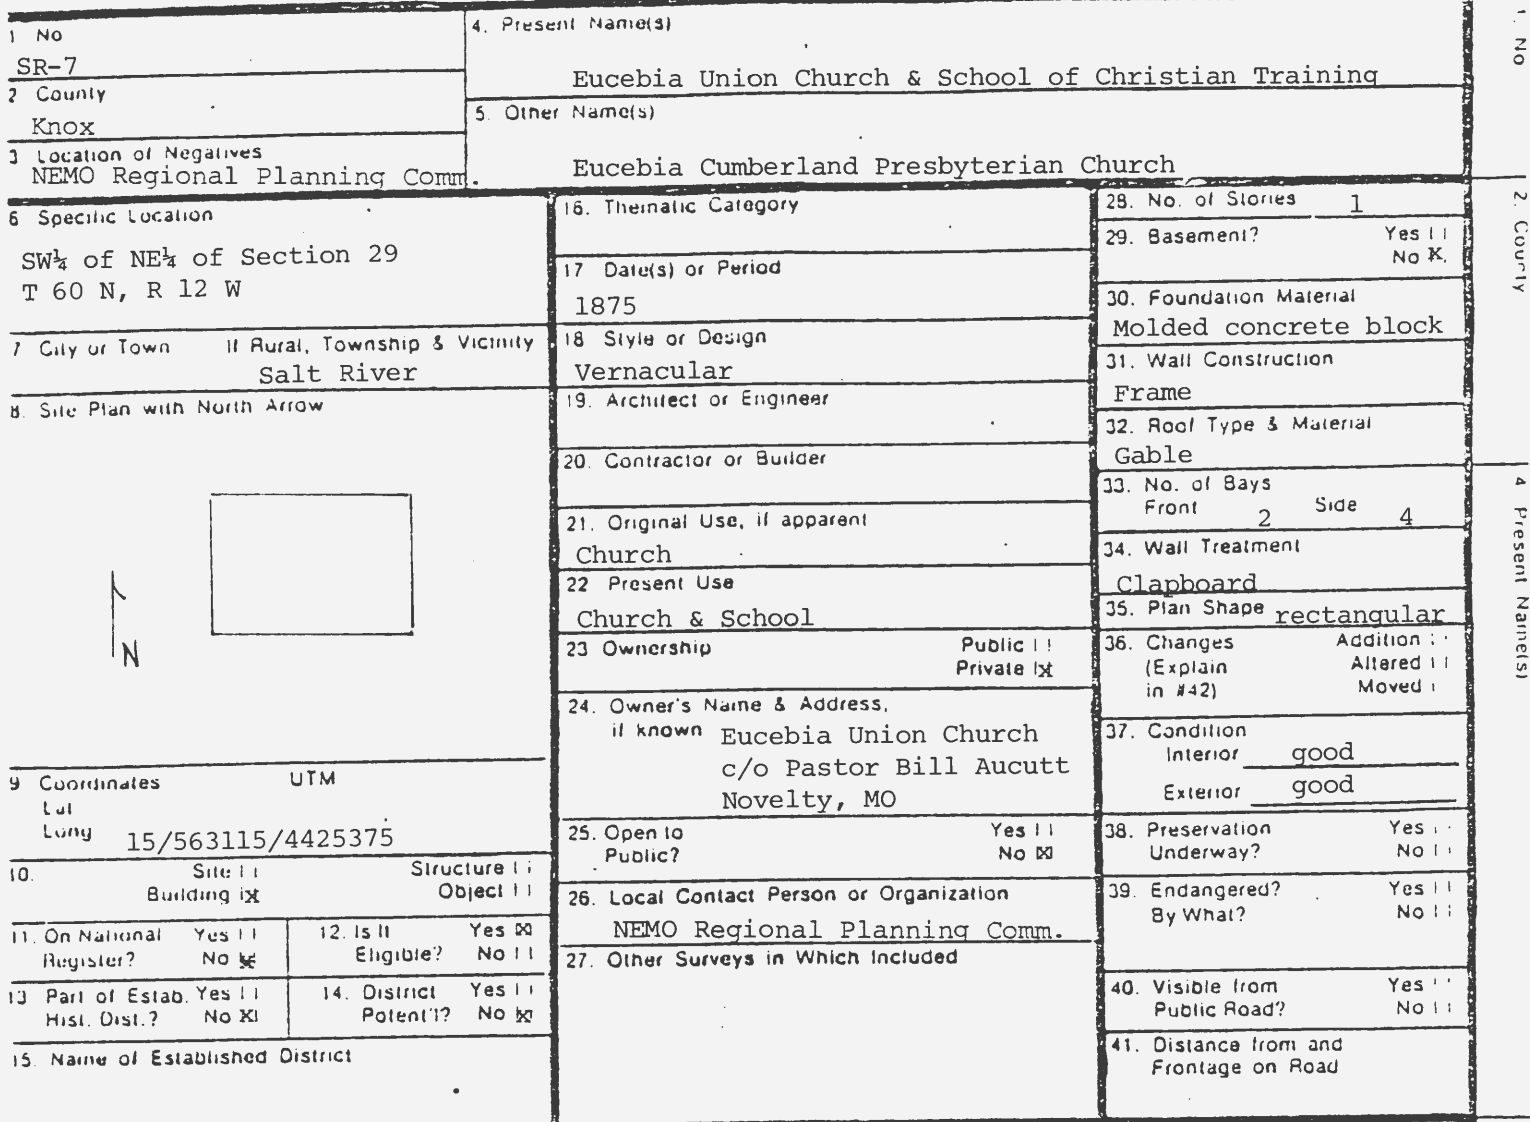 1 No
SR-7
2 County
Knox
3 Location of Negatives
NEMO Regional Planning Comm.
4. Present Name(s)
Eucebia Union Church & School of Christian Training
5. Other Name(s)
Eucebia Cumberland Presbyterian Church
6 Specific Location
SW¼ of NE¼ of Section 29
T 60 N, R 12 W
7 City or Town If Rural, Township & Vicinity
Salt River
8. Site Plan with North Arrow
N
9 Coordinates UTM
Lat
Long 15/563115/4425375
10. Site Structure
Building X Object
11. On National Register? Yes No X
12. Is It Eligible? Yes X No
13 Part of Estab. Hist. Dist.? Yes No X
14. District Potent'l? Yes No X
15. Name of Established District
16. Thematic Category
17 Date(s) or Period
1875
18 Style or Design
Vernacular
19. Architect or Engineer
20. Contractor or Builder
21. Original Use, if apparent
Church
22 Present Use
Church & School
23 Ownership Public
Private X
24. Owner's Name & Address,
if known Eucebia Union Church
c/o Pastor Bill Aucutt
Novelty, MO
25. Open to Yes
Public? No X
26. Local Contact Person or Organization
NEMO Regional Planning Comm.
27. Other Surveys in Which Included
28. No. of Stories 1
29. Basement? Yes
No X
30. Foundation Material
Molded concrete block
31. Wall Construction
Frame
32. Roof Type & Material
Gable
33. No. of Bays
Front 2 Side 4
34. Wall Treatment
Clapboard
35. Plan Shape rectangular
36. Changes Addition
(Explain Altered
in #42) Moved
37. Condition
Interior good
Exterior good
38. Preservation Yes
Underway? No
39. Endangered? Yes
By What? No
40. Visible from Yes
Public Road? No
41. Distance from and
Frontage on Road
1. No
2. County
4 Present Name(s)